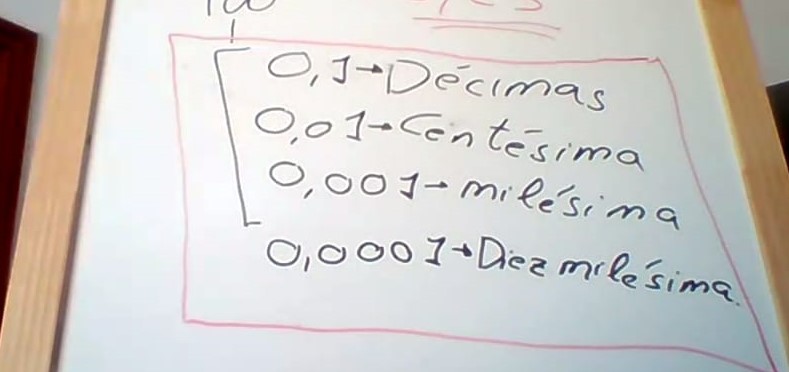 0,1→Décimas
0,01→Centésima
0,001→milésima
0,0001→Diez milésima.